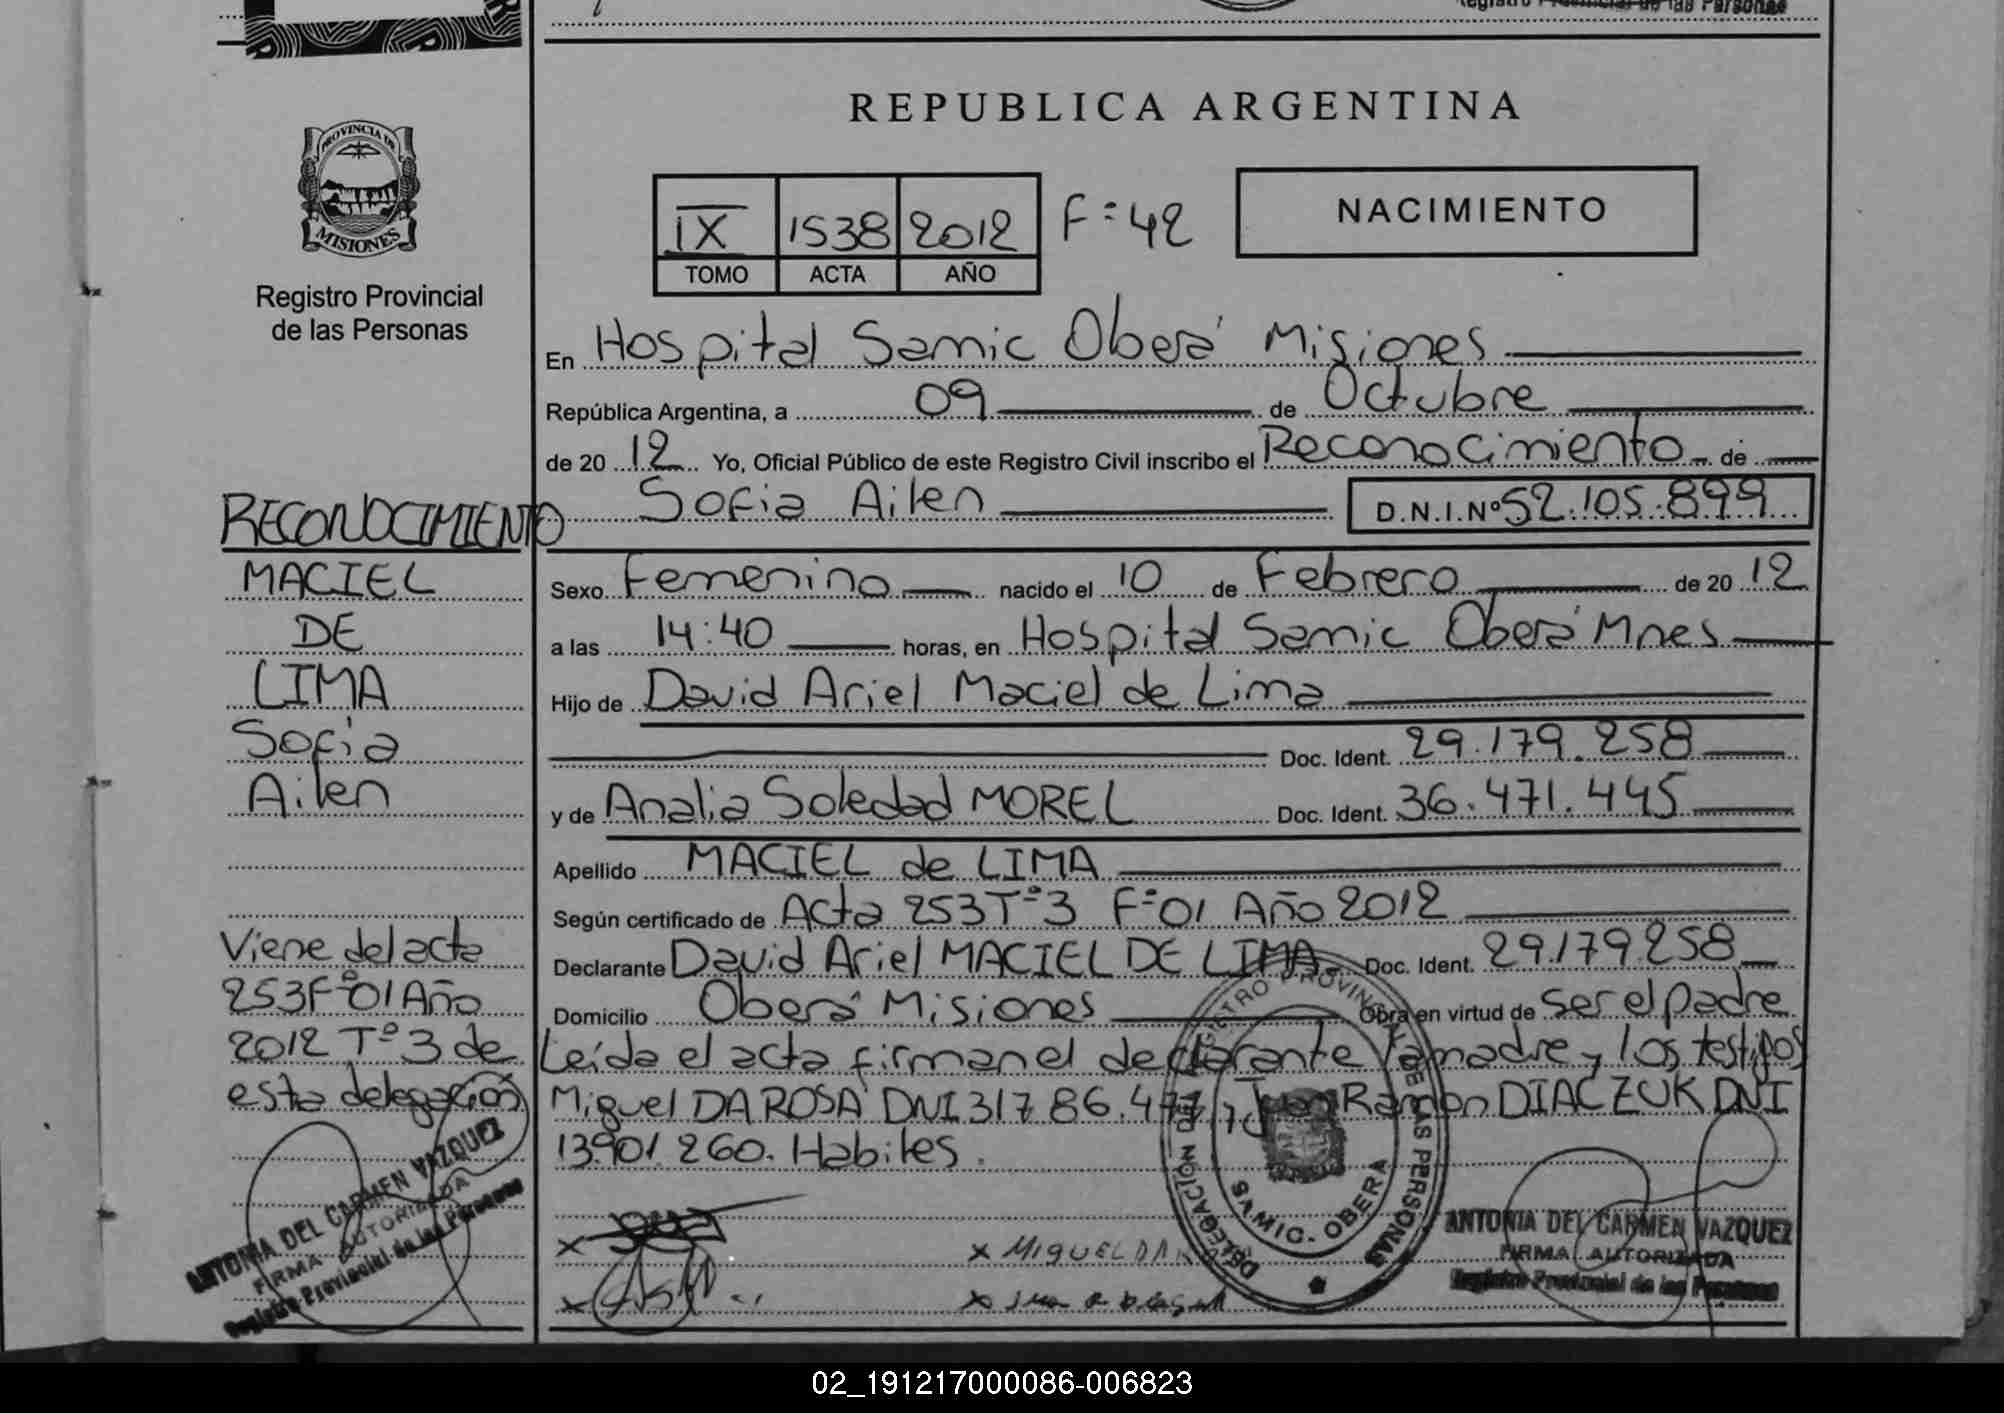 Registro Provincial de las Personas
PROVINCIA DE
MISIONES
Registro Provincial
de las Personas
REPUBLICA ARGENTINA
IX 1538 2012 F=42
TOMO ACTA AÑO
NACIMIENTO
En Hospital Samic Oberá Misiones
República Argentina, a 09 de Octubre
de 20 12 Yo, Oficial Público de este Registro Civil inscribo el Reconocimiento de
Sofia Ailen D.N.I.Nº 52.105.899
Sexo Femenino nacido el 10 de Febrero de 20 12
a las 14:40 horas, en Hospital Samic Oberá Mnes
Hijo de David Ariel Maciel de Lima
Doc. Ident. 29.179.258
y de Analia Soledad MOREL Doc. Ident. 36.471.445
Apellido MACIEL de LIMA
Según certificado de Acta 253 Tº 3 Fº 01 Año 2012
Declarante David Ariel MACIEL DE LIMA Doc. Ident. 29.179.258
Domicilio Oberá Misiones Obra en virtud de ser el padre
Leída el acta firman el declarante la madre y los testigos
Miguel DA ROSA DNI 31786.477 y Juan Ramon DIACZUK DNI
13901.260. Habiles.
RECONOCIMIENTO
MACIEL
DE
LIMA
Sofia
Ailen
Viene del acta
253 Fº 01 Año
2012 Tº 3 de
esta delegación
ANTONIA DEL CARMEN VAZQUEZ
FIRMA AUTORIZADA
Registro Provincial de las Personas
X
X
X MIGUEL DA
X
REGISTRO PROVINCIAL DE LAS PERSONAS
DELEGACIÓN
SAMIC. OBERA
ANTONIA DEL CARMEN VAZQUEZ
FIRMA AUTORIZADA
Registro Provincial de las Personas
02_191217000086-006823